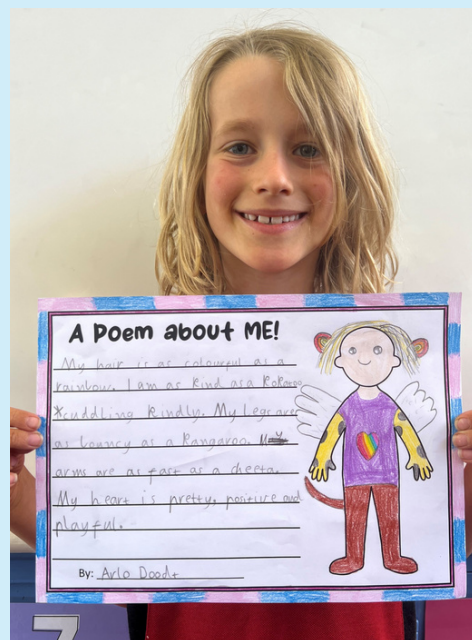 A Poem about ME!
My hair is as colourful as a
rainbow. I am as kind as a
cuddling kindly. My Legs are
as bouncy as a Kangaroo. My
arms are as fast as a cheeta.
My heart is pretty, positive and
playful.
By: Arlo Doodt
7